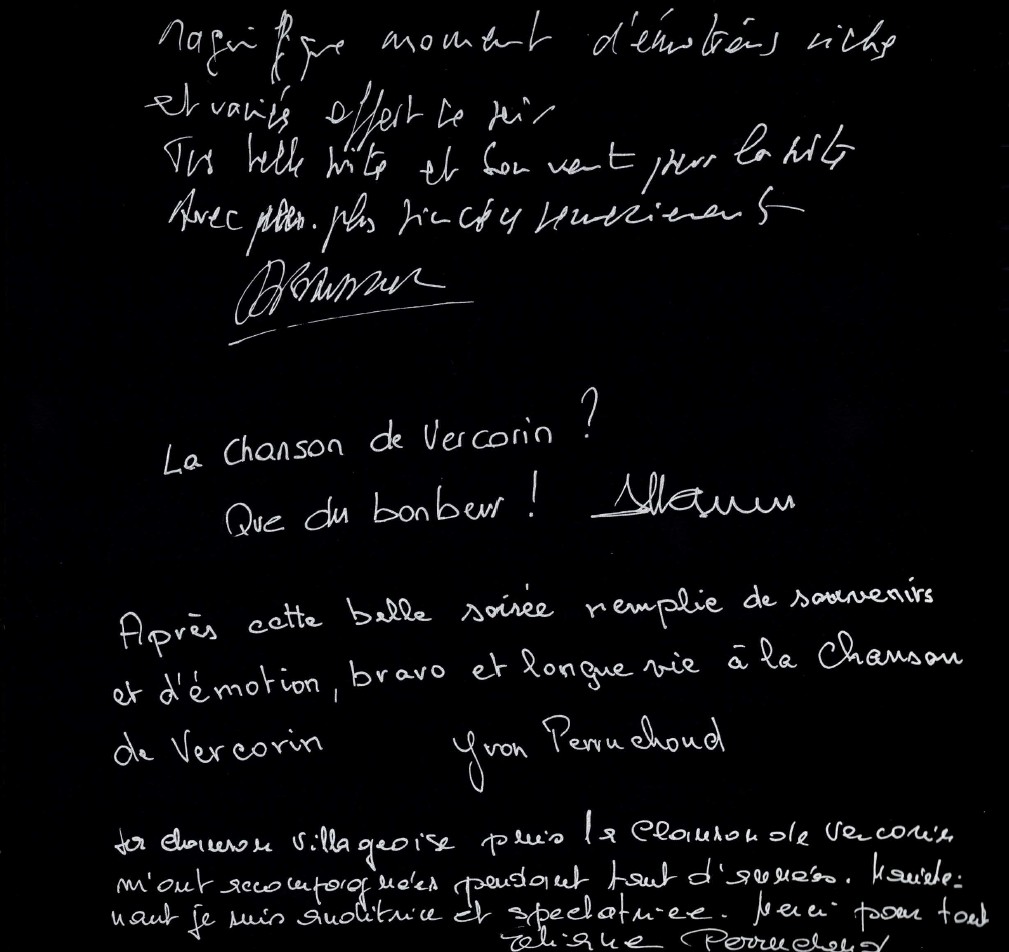 Magnifique moment d'émotions riche
et variés offert ce soir
Très belle suite et bon vent pour la suite
Avec mes plus sincères remerciements
La Chanson de Vercorin ?
Que du bonheur !
Après cette belle soirée remplie de souvenirs
et d'émotion, bravo et longue vie à la Chanson
de Vercorin Yvon Perruchoud
La chanson villageoise puis la Chanson de Vercorin
m'ont accompagnées pendant tant d'années. Mainte-
nant je suis auditrice et spectatrice. Merci pour tout
Perruchoud